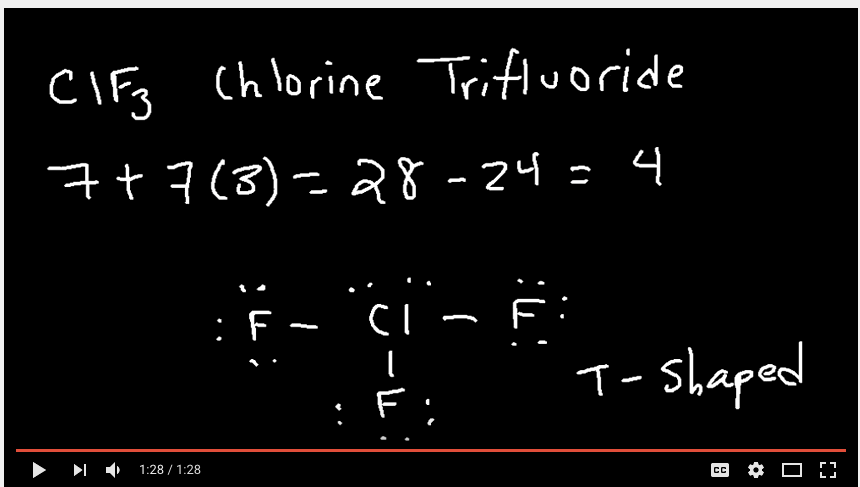 ClF3 Chlorine Trifluoride
7 + 7(3) = 28 - 24 = 4
F - Cl - F
|
F
T - Shaped
1:28 / 1:28
CC